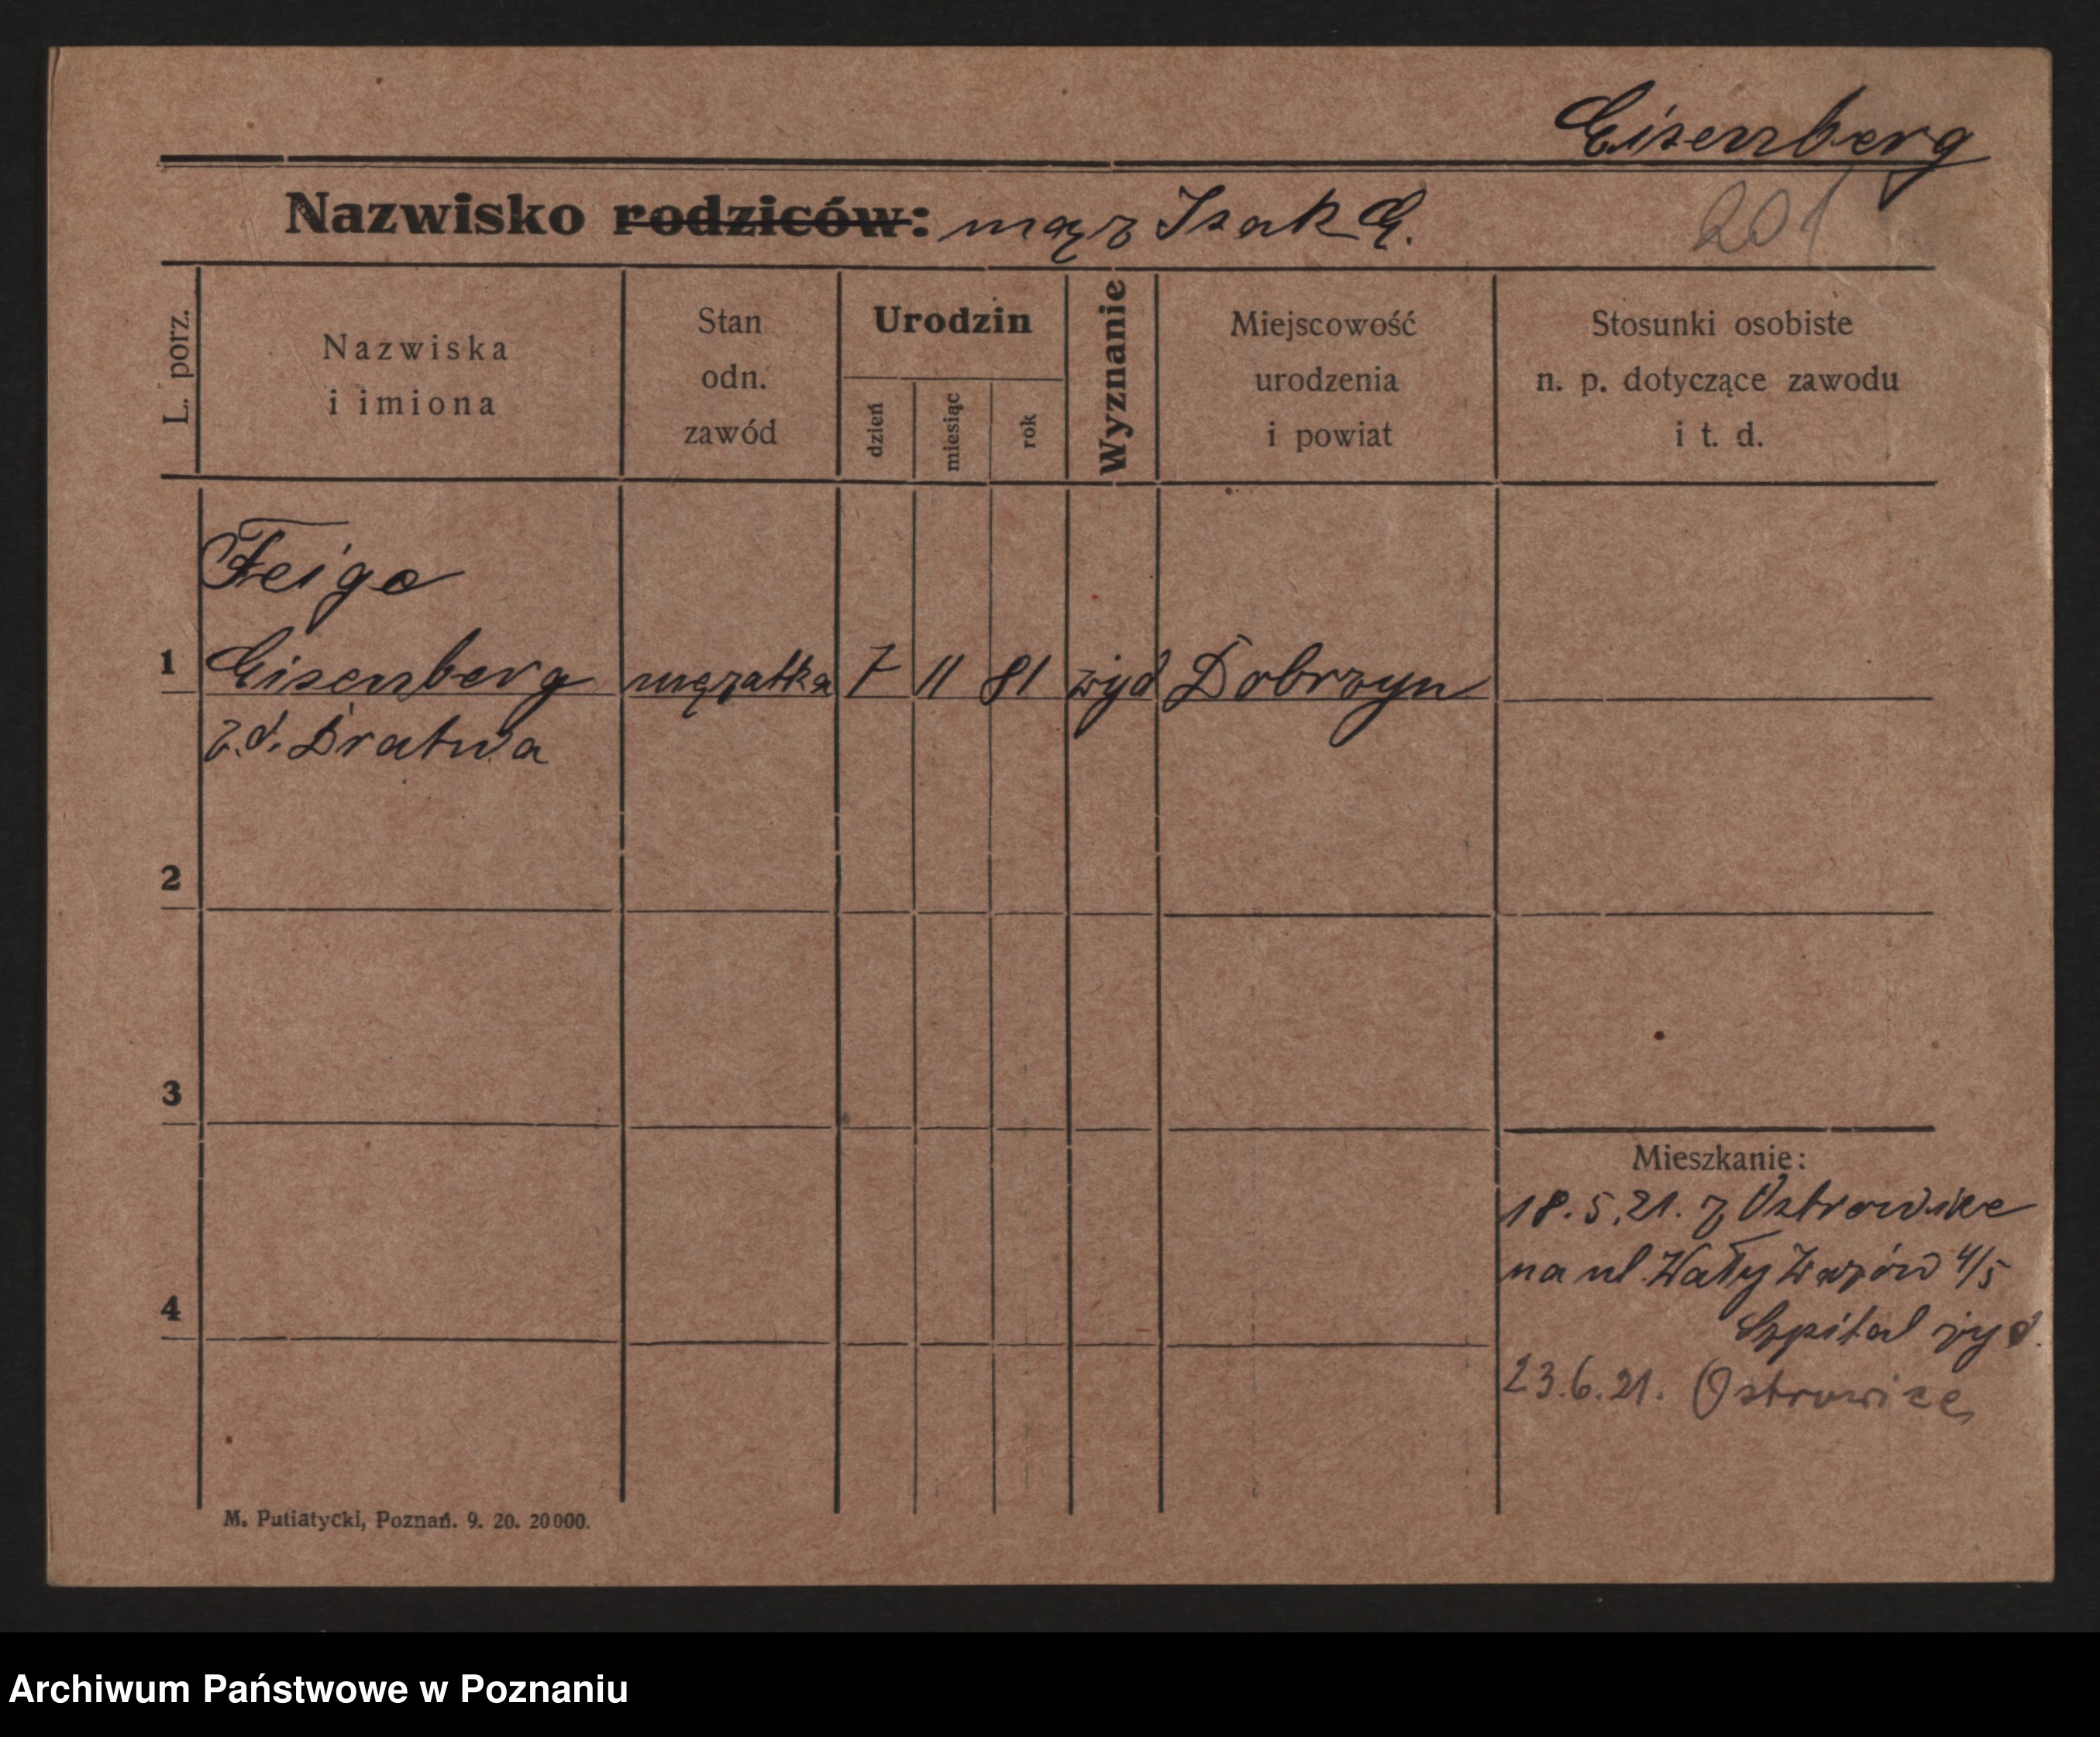 Eisenberg
Nazwisko rodziców: mąż Izak E.
201
L. porz.
Nazwiska
i imiona
Stan
odn.
zawód
Urodzin
dzień
miesiąc
rok
Wyznanie
Miejscowość
urodzenia
i powiat
Stosunki osobiste
n. p. dotyczące zawodu
i t. d.
Feige
1 Eisenberg mężatka 7 11 81 żyd Dobrzyn
z.d. Dratwa
2
3
Mieszkanie:
18.5.21. z Ostrowite
na ul. Wały Wazów 4/5
4
Szpital żyd.
23.6.21.
M. Putiatycki, Poznań. 9. 20. 20000.
Archiwum Państwowe w Poznaniu